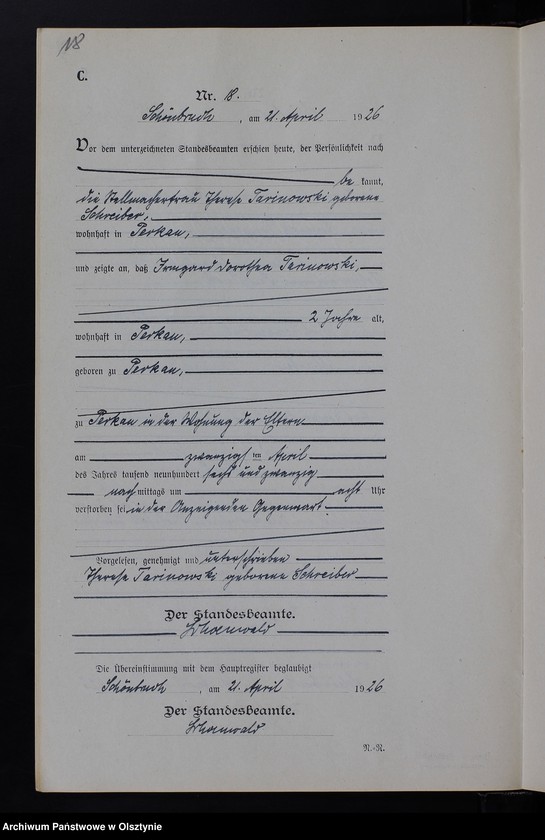 18
C.
Nr. 18.
Schönbruch, am 21. April 1926
Vor dem unterzeichneten Standesbeamten erschien heute, der Persönlichkeit nach
be kannt,
die Stellmacherfrau Therese Tarinowski geborene
Schreiber,
wohnhaft in Perkau,
und zeigte an, daß Irmgard Dorothea Tarinowski,
2 Jahre alt,
wohnhaft in Perkau,
geboren zu Perkau,
zu Perkau in der Wohnung der Eltern
am zwanzigsten April
des Jahres tausend neunhundert sechs und zwanzig
nach mittags um acht Uhr
verstorben sei in der Anzeigenden Gegenwart.
Vorgelesen, genehmigt und unterschrieben
Therese Tarinowski geborene Schreiber
Der Standesbeamte.
Die Übereinstimmung mit dem Hauptregister beglaubigt
Schönbruch, am 21. April 1926
Der Standesbeamte.
N.-R.
Archiwum Państwowe w Olsztynie